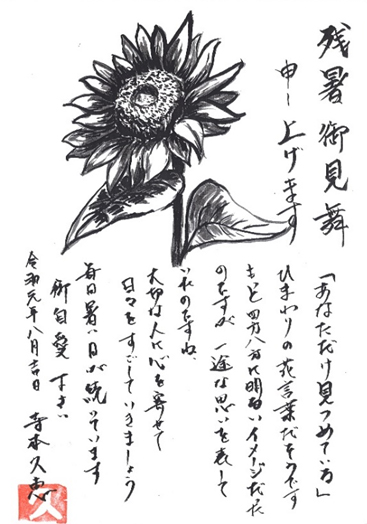 残暑御見舞
申し上げます
「あなただけ見つめている」
ひまわりの花言葉だそうです
もっと四方八方に明るいイメージだった
のですが、一途な思いを表して
いたのですね。
大切な人に心を寄せて
日々をすごしていきましょう
毎日暑い日が続いています
御自愛下さい
令和元年八月吉日
寺本久恵
久